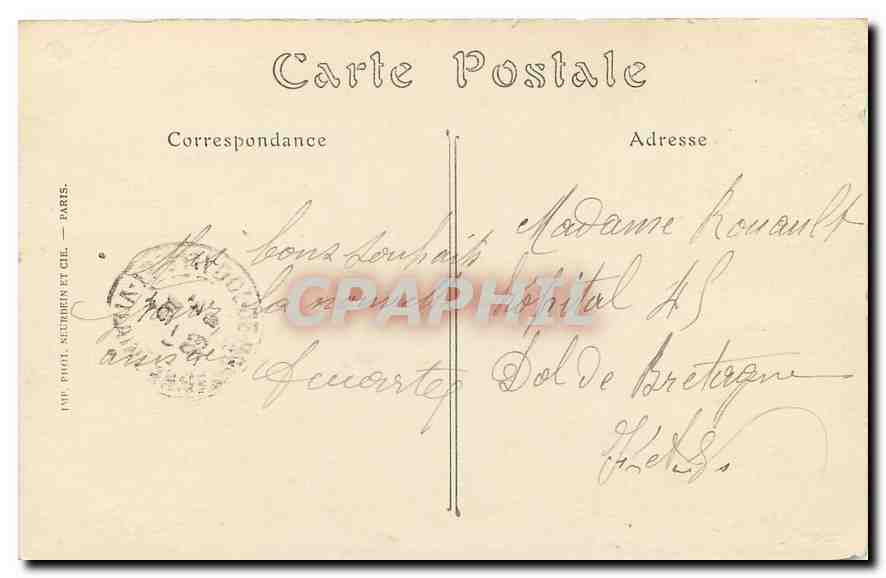 Carte Postale
Correspondance
Adresse
IMP. PHOT. NEURDEIN ET CIE. — PARIS.
bons souhaits
pour la nouvelle
année
Madame Rouault
hôpital 45
Dol de Bretagne
CPARHIL